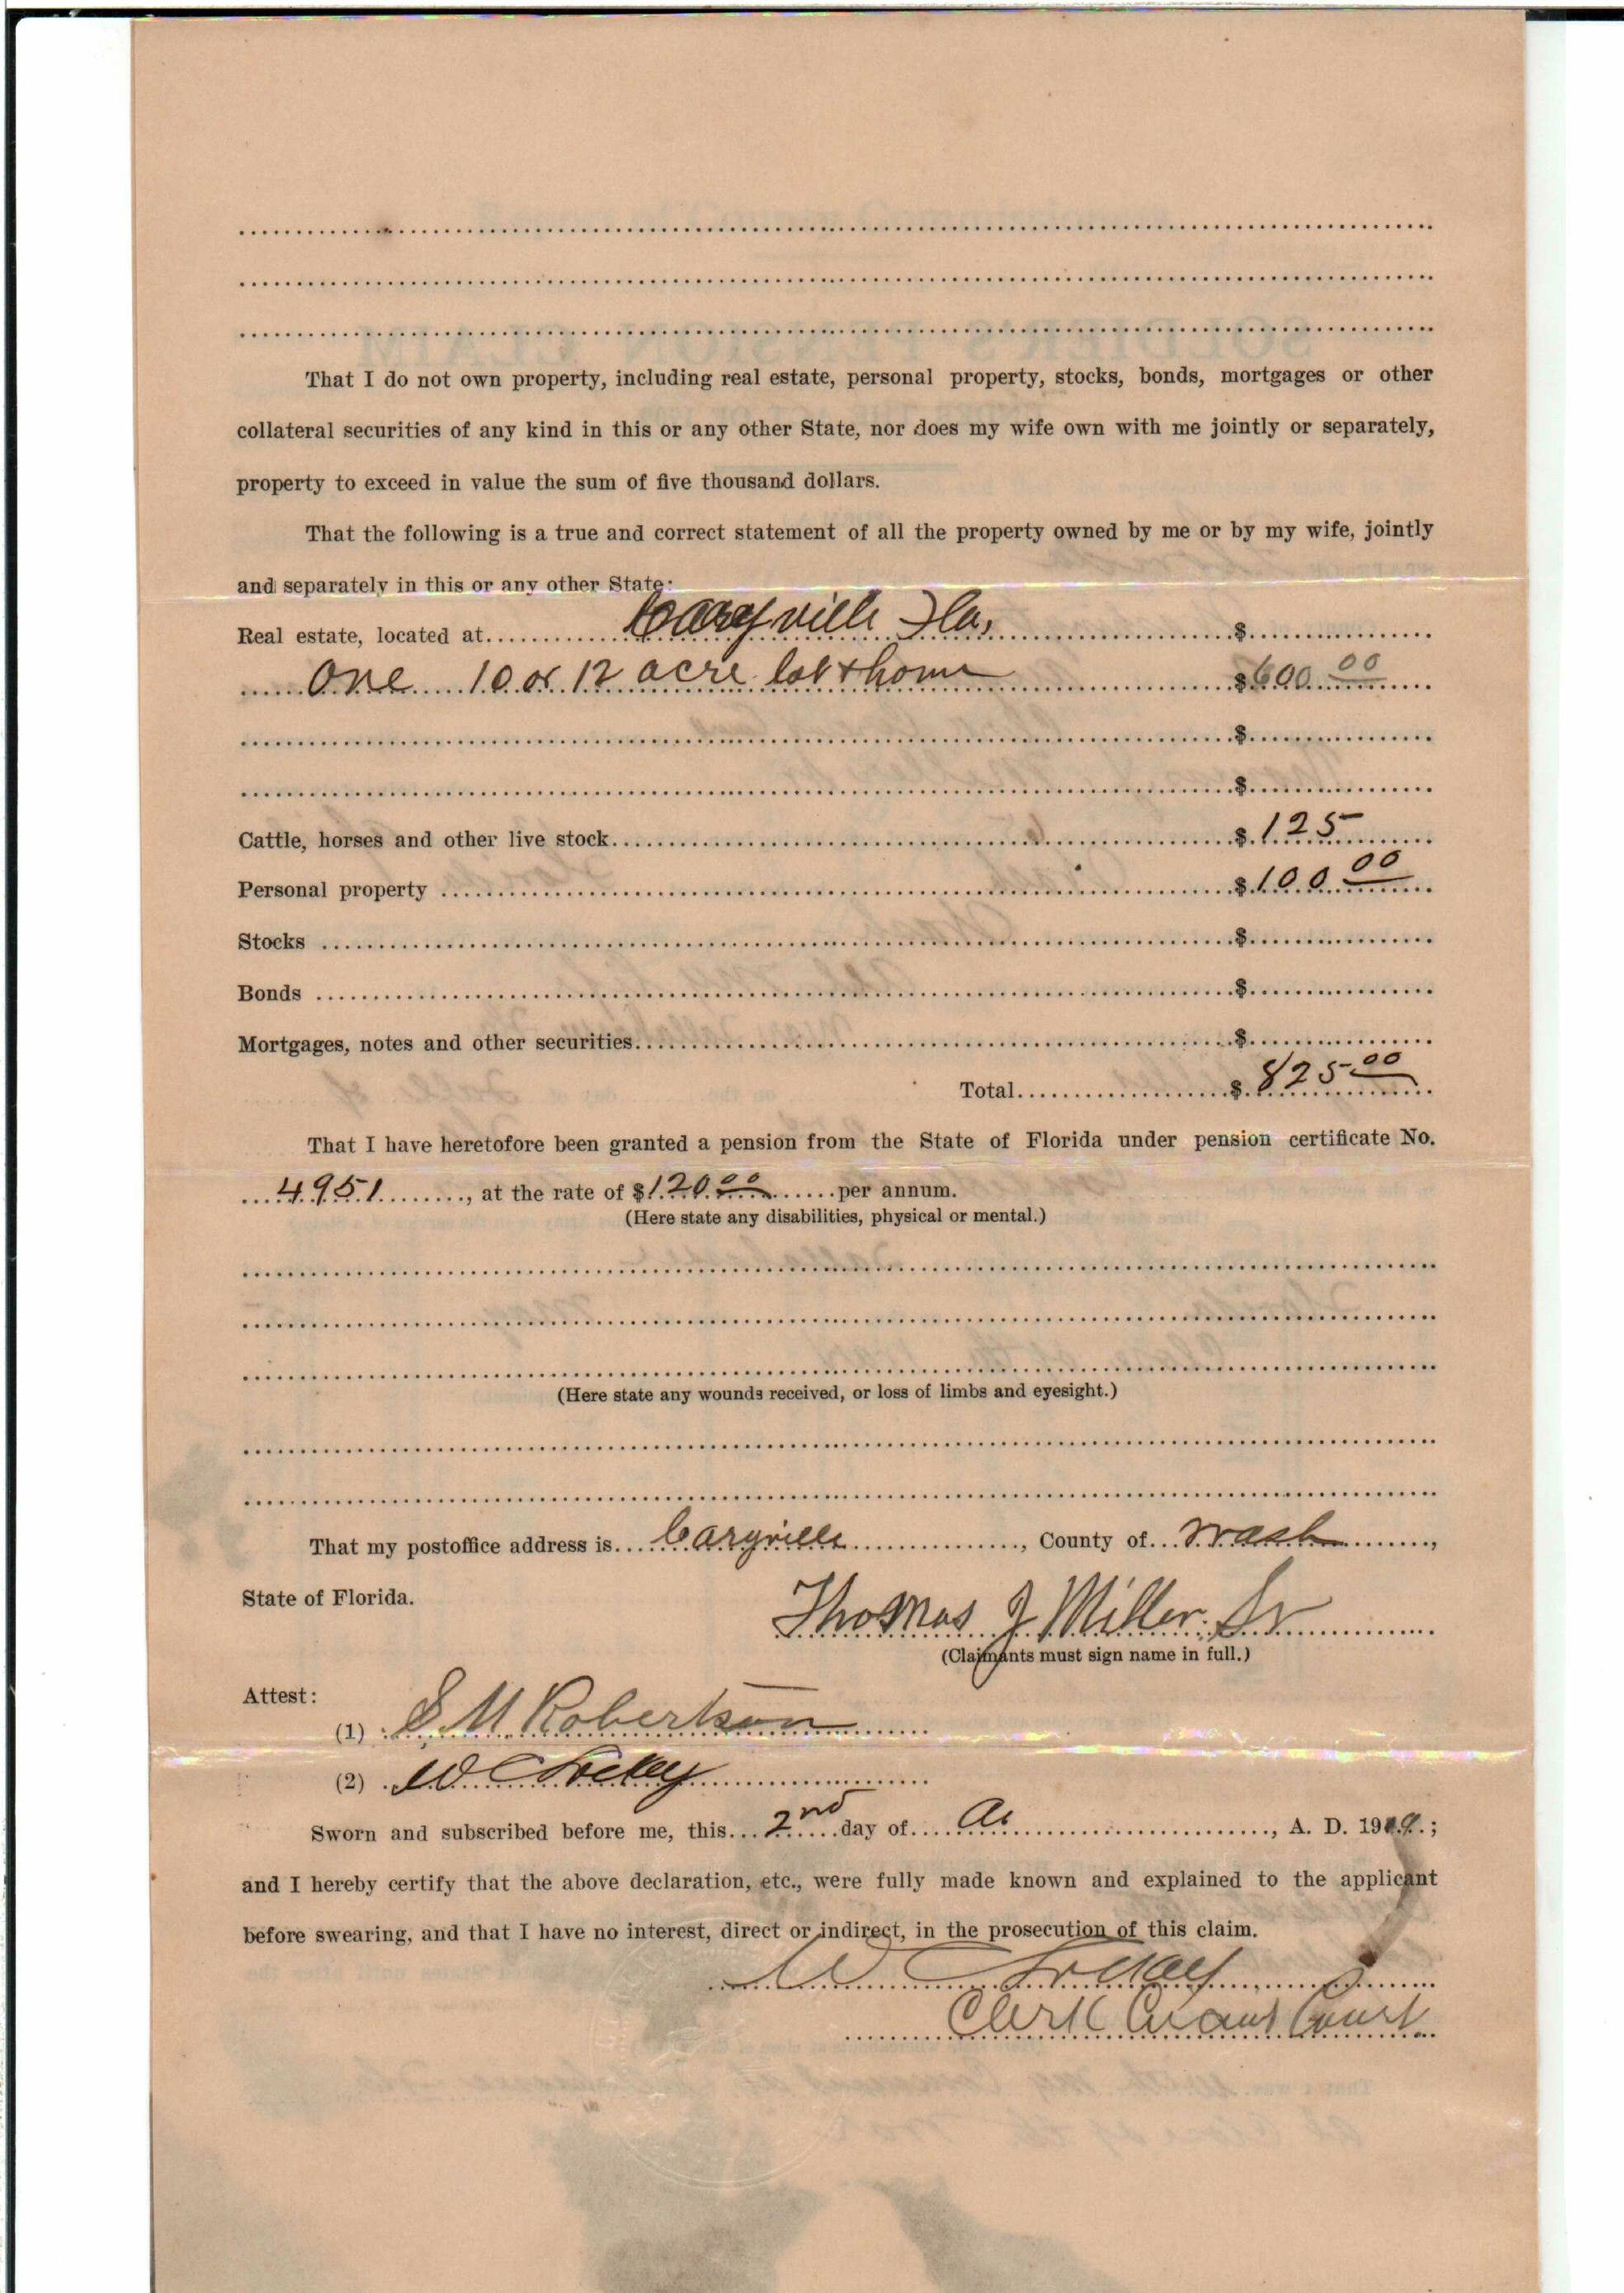 That I do not own property, including real estate, personal property, stocks, bonds, mortgages or other
collateral securities of any kind in this or any other State, nor does my wife own with me jointly or separately,
property to exceed in value the sum of five thousand dollars.
That the following is a true and correct statement of all the property owned by me or by my wife, jointly
and separately in this or any other State:
Real estate, located at Caryville Fla, $
One 10 or 12 acre lot & home $600 00
$
$
Cattle, horses and other live stock $125
Personal property $100 00
Stocks $
Bonds $
Mortgages, notes and other securities $
Total $825 00
That I have heretofore been granted a pension from the State of Florida under pension certificate No.
4951, at the rate of $120 00 per annum.
(Here state any disabilities, physical or mental.)
(Here state any wounds received, or loss of limbs and eyesight.)
That my postoffice address is Caryville, County of Wash,
State of Florida.
Thomas J Miller Sr
(Claimants must sign name in full.)
Attest:
(1) S M Robertson
(2) W C
Sworn and subscribed before me, this 2nd day of, A. D. 1909;
and I hereby certify that the above declaration, etc., were fully made known and explained to the applicant
before swearing, and that I have no interest, direct or indirect, in the prosecution of this claim.
W C
Clerk Circuit Court